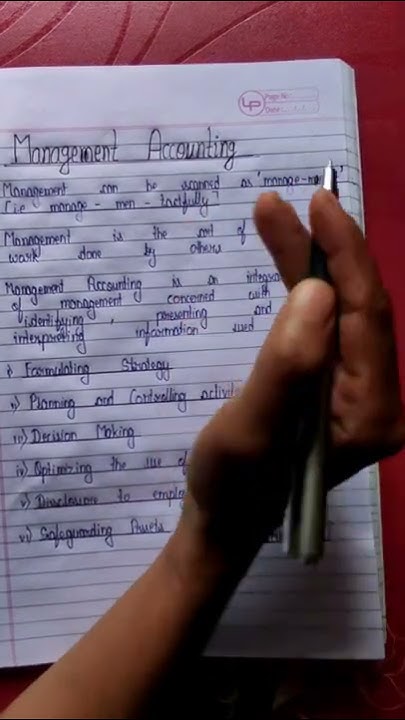 LP
Page No.:
Date:
Management Accounting
Management can be scanned as 'manage-m
[i.e manage - men - tactfully]
Management is the art of
work done by others
Management Accounting is an integra
of management concerned with
identifying, presenting and
interpreting information used
i) Formulating Strategy
ii) Planning and Controlling activit
iii) Decision Making
iv) Optimizing the use of
v) Disclosure to emplo
vi) Safeguarding Assets